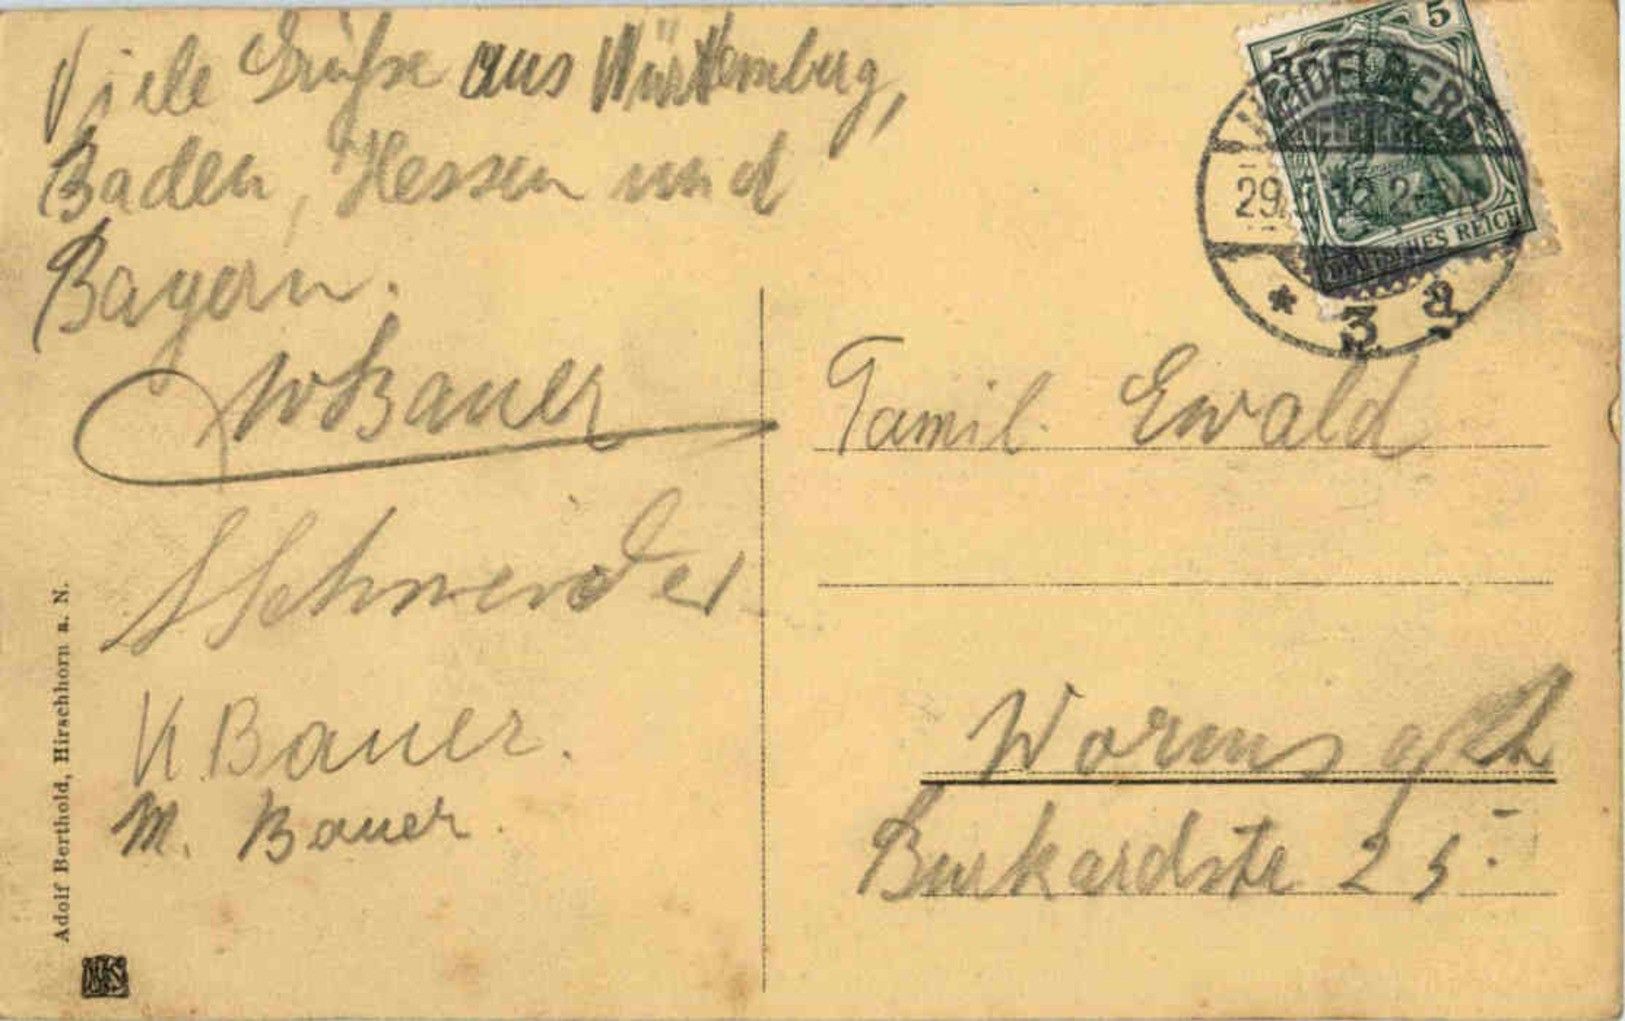 Viele Grüße aus Württemberg,
Baden, Hessen und
Bayern.
W Bauer
A Schneider
K. Bauer.
M. Bauer.
Adolf Berthold, Hirschhorn a. N.
5 5
DEUTSCHES REICH
HEIDELBERG
29. 12. 2-
* 3 a
Famil. Ewald
Worms a/Rh
Burkardstr 25.